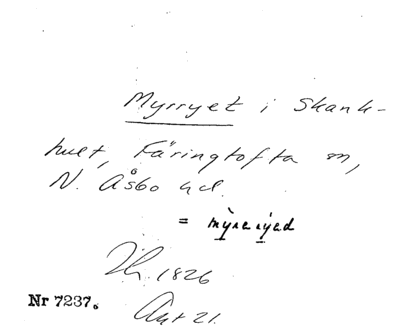 Myrryet i Skank-
hult, Färingtofta sn,
N. Åsbo hd.
= myreryed
1826
Nr 7237.